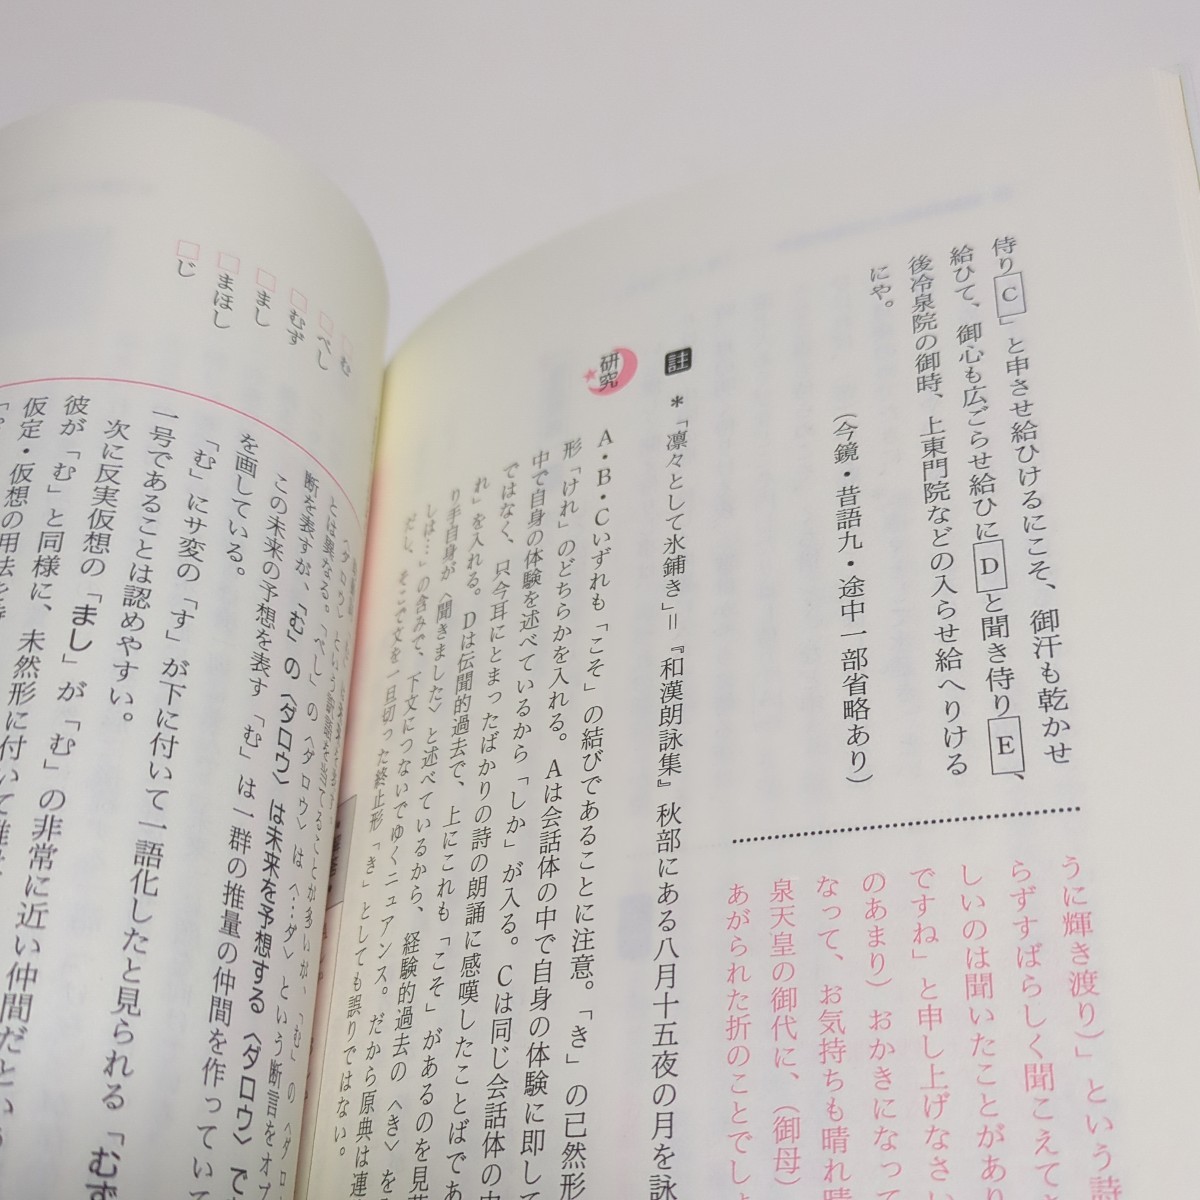 侍り C 」と申させ給ひけるにこそ、御汗も乾かせ
給ひて、御心も広ごらせ給ひに D と聞き侍り E 、
後冷泉院の御時、上東門院などの入らせ給へりける
にや。
（今鏡・昔語九・途中一部省略あり）
うに輝き渡り）」という詩
らずすばらしく聞こえて
しいのは聞いたことがあり
ですね」と申し上げなさい
のあまり）おかきになって
なって、お気持ちも晴れ晴
泉天皇の御代に、（御母）
あがられた折のことでしょ
註
＊「凛々として氷鋪き」＝『和漢朗詠集』秋部にある八月十五夜の月を詠
研究
A・B・Cいずれも「こそ」の結びであることに注意。「き」の已然形
形「けれ」のどちらかを入れる。Aは会話体の中で自身の体験に即して
中で自身の体験を述べているから「しか」が入る。Cは同じ会話体の中
ではなく、只今耳にとまったばかりの詩の朗誦に感嘆したことばであ
れ」を入れる。Dは伝聞的過去で、上にこれも「こそ」があるのを見落
り手自身が〈聞きました〉と述べているから、経験的過去の〈き〉を
しは…」の含みで、下文につないでゆくニュアンス。だから原典は連
だし、そこで文を一旦切った終止形「き」としても誤りではない。
む
べし
むず
まし
まほし
じ
とは異なる。「べし」の〈ダロウ〉は〈…ダ〉という断言をオブ
断を表すが、「む」の〈ダロウ〉は未来を予想する〈ダロウ〉で
この未来の予想を表す「む」は一群の推量の仲間を作ってい
を画している。
「む」にサ変の「す」が下に付いて一語化したと見られる「むず
一号であることは認めやすい。
次に反実仮想の「まし」が「む」の非常に近い仲間だという
彼が「む」と同様に、未然形に付いて
仮定・仮想の用法を